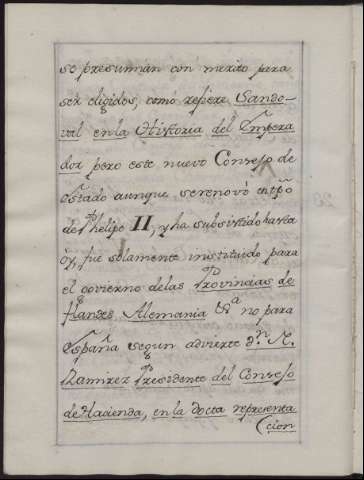 se presumian con merito para
ser eligidos, como refiere Sando-
val en la Historia del Empera
dor pero este nuevo Consejo de
estado aunque se renovó en tpõ
de Phelipe II, y ha subsistido hasta
oy, fue solamente instituido para
el govierno de las Provincias de
Flandes, Alemania &ª no para
España segun advierte Dn.
Ramirez Presidente del Consejo
de Hacienda, en la docta representa
cion